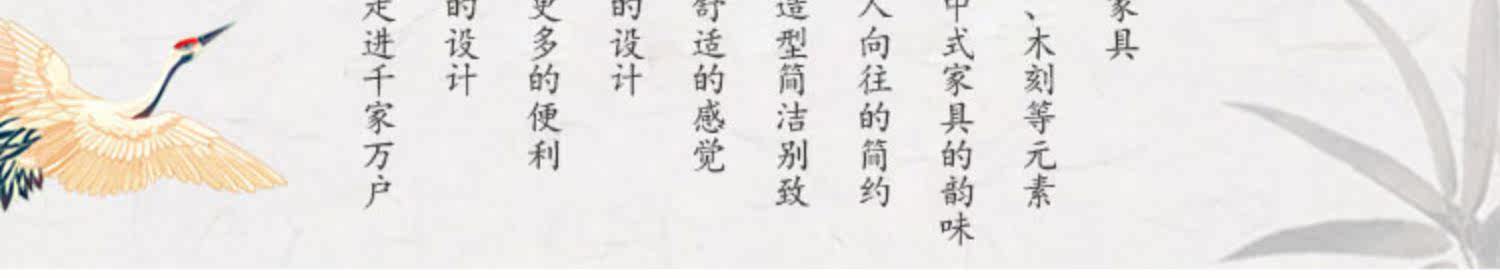 家具
、木刻等元素
中式家具的韵味
人向往的简约
造型简洁别致
舒适的感觉
的设计
更多的便利
的设计
走进千家万户